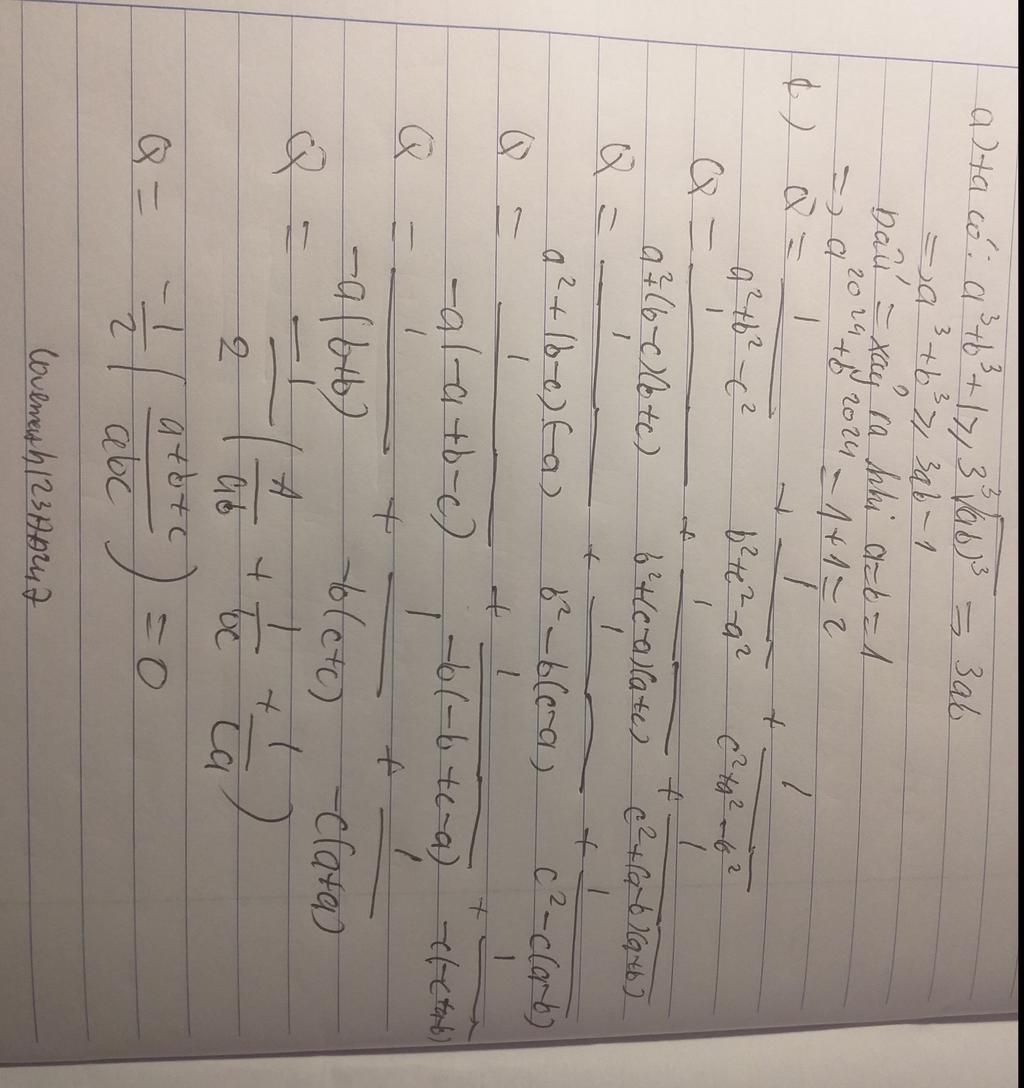 a) ta có: a³ + b³ + 1 ≥ 3∛(ab)³ = 3ab
=> a³ + b³ ≥ 3ab - 1
Dấu = xảy ra khi a = b = 1
=> a²⁰²⁴ + b²⁰²⁴ = 1 + 1 = 2
b) Q = 1/(a² + b² - c²) + 1/(b² + c² - a²) + 1/(c² + a² - b²)
Q = 1/(a² + (b - c)(b + c)) + 1/(b² + (c - a)(a + c)) + 1/(c² + (a - b)(a + b))
Q = 1/(a² + (b - c)(-a)) + 1/(b² - b(c - a)) + 1/(c² - c(a - b))
Q = 1/(-a(-a + b - c)) + 1/(-b(-b + c - a)) + 1/(-c(-c + a - b))
Q = 1/(-a(b + b)) + 1/(-b(c + c)) + 1/(-c(a + a))
Q = -1/2 (1/ab + 1/bc + 1/ca)
Q = -1/2 ((a + b + c)/abc) = 0